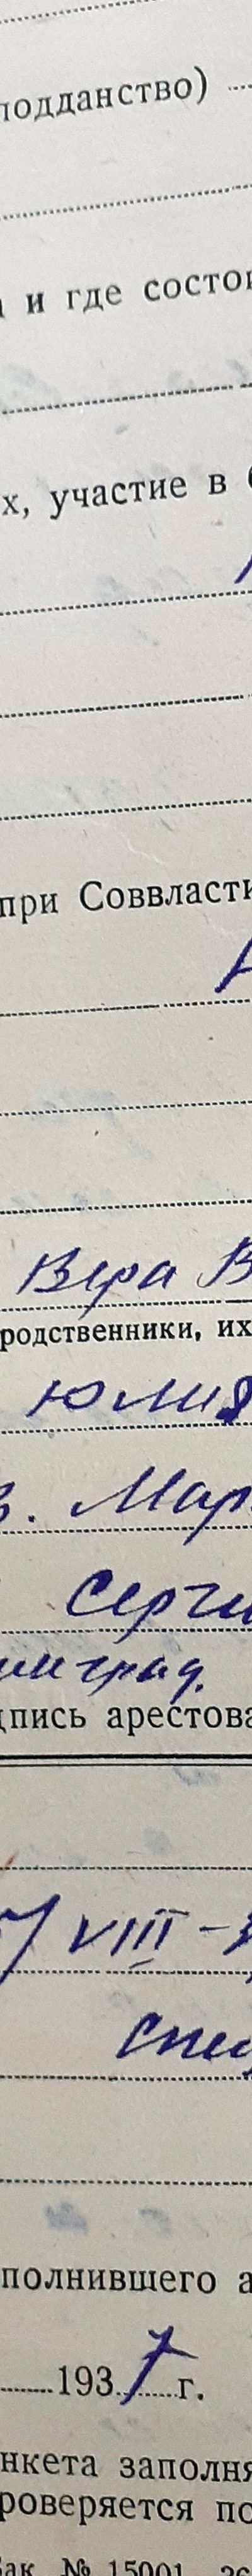 подданство)
и где состо
х, участие в
при Соввласти
Вера В
родственники, их
Юлия
в. Мар
Серги
инград.
дпись арестова
7/VIII-3
Спец
полнившего а
193 7 г.
нкета заполня
роверяется по
ак. № 15001